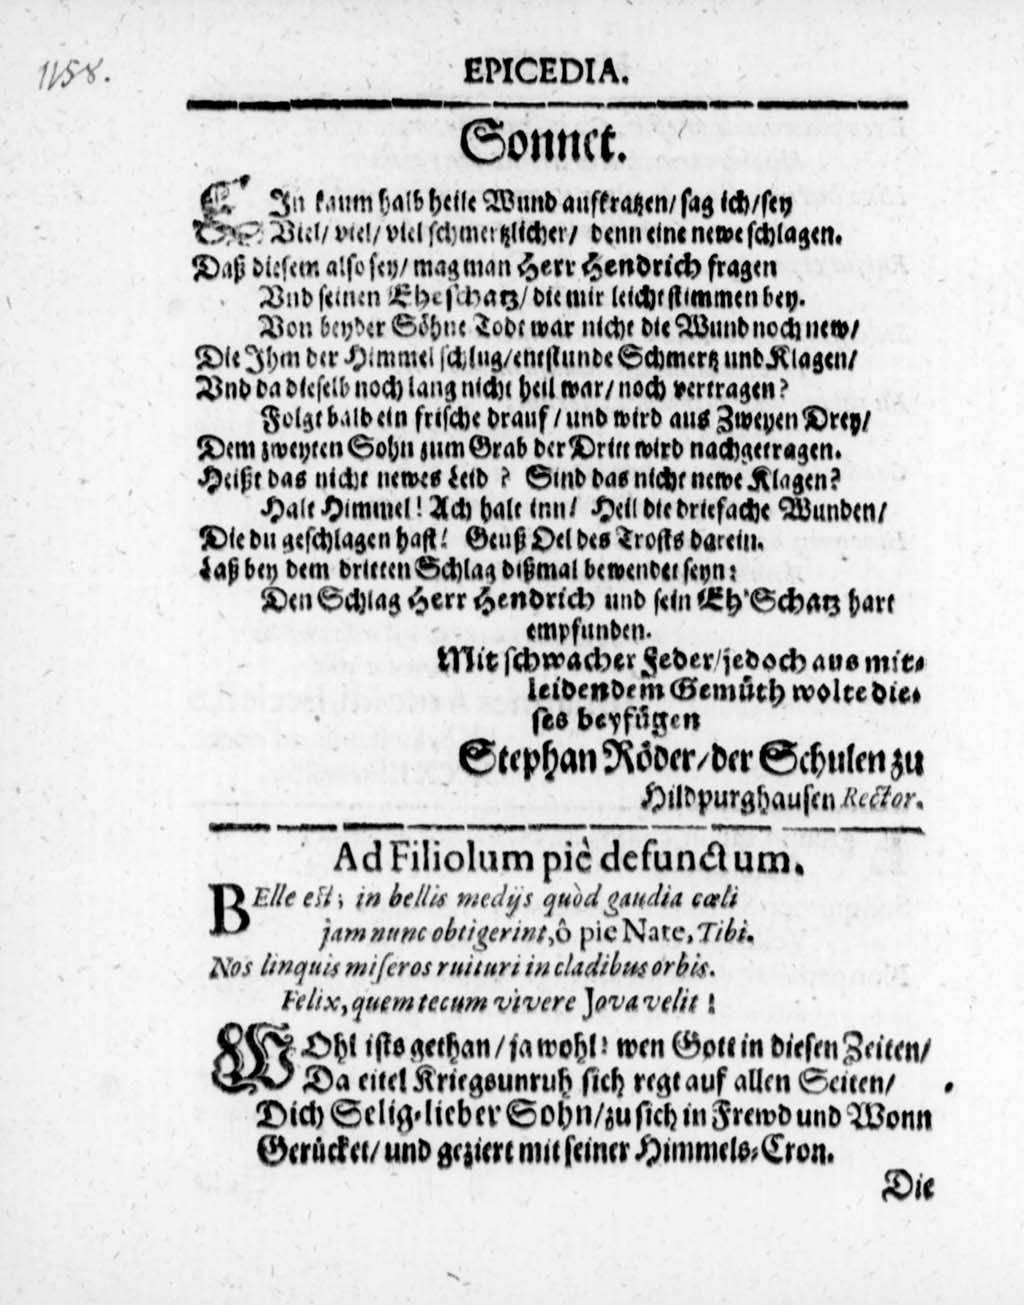 1158.
EPICEDIA.
Sonnet.
EIn kaum halb heile Wund auffkratzen/ sag ich/ sey
Viel/ viel/ viel schmertzlicher/ denn eine newe schlagen.
Daß diesem also sey/ mag man Herr Hendrich fragen
Vnd seinen Eheschatz/ die mir leicht stimmen bey.
Von beyder Söhne Todt war nicht die Wund noch new/
Die Ihm der Himmel schlug/ entstunde Schmertz und Klagen/
Vnd da dieselb noch lang nicht heil war/ noch vertragen?
Folgt bald ein frische drauf/ und wird aus Zweyen Drey/
Dem zweyten Sohn zum Grab der Dritt wird nachgetragen.
Heißt das nicht newes Leid? Sind das nicht newe Klagen?
Halt Himmel! Ach halt inn! Heil die driefache Wunden/
Die du geschlagen hast! Geuß Oel des Trosts darein.
Laß bey dem dritten Schlag dißmal bewendet seyn:
Den Schlag Herr Hendrich und sein Eh'Schatz hart
empfunden.
Mit schwacher Feder/ jedoch aus mit-
leidendem Gemüth wolte die-
ses beyfügen
Stephan Röder/ der Schulen zu
Hildpurghausen Rector.
Ad Filiolum piè defunctum.
BElle est; in bellis medijs quòd gaudia cœli
jam nunc obtigerint, ô pie Nate, Tibi.
Nos linquis miseros ruituri in cladibus orbis.
Felix, quem tecum vivere Jova velit!
WOhl ists gethan/ ja wohl! wen Gott in diesen Zeiten/
Da eitel Kriegsunruh sich regt auf allen Seiten/
Dich Selig-lieber Sohn/ zu sich in Frewd und Wonn
Gerücket/ und geziert mit seiner Himmels-Cron.
Die